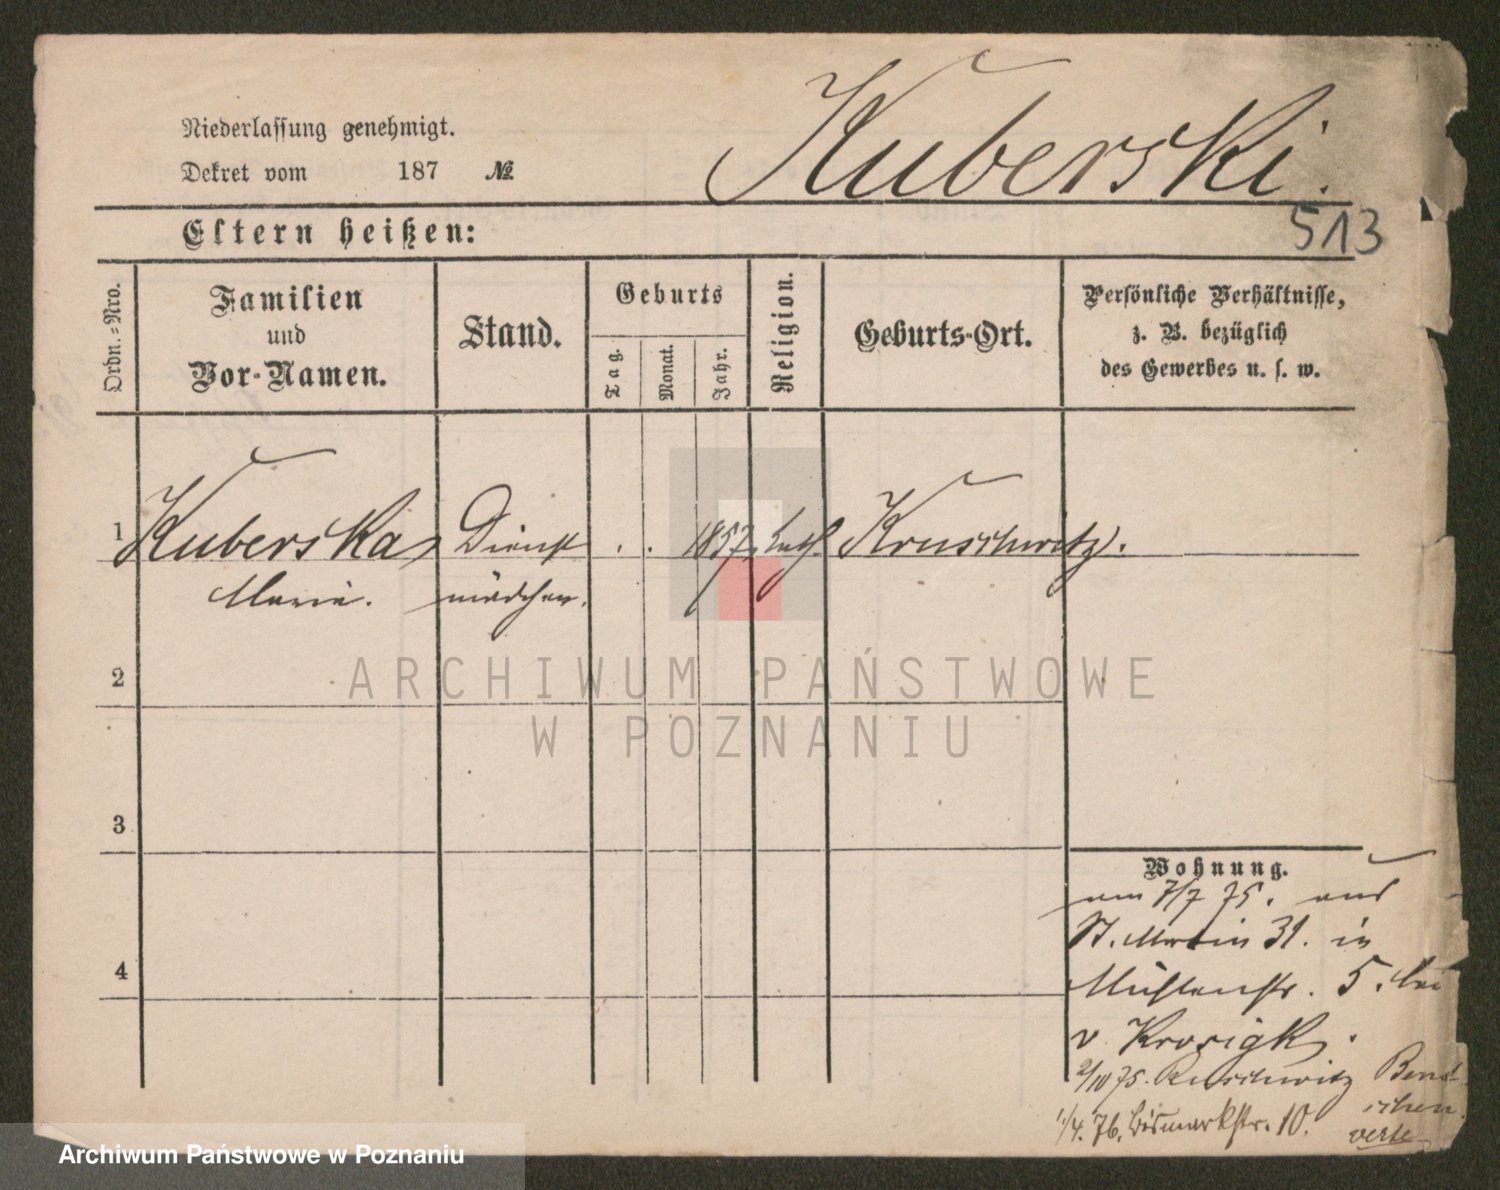 Kuberski.
Niederlassung genehmigt.
Dekret vom 187 №
513
Eltern heißen:
Ordn.=Nro.
Familien
und
Vor-Namen.
Stand.
Geburts
Tag.
Monat.
Jahr.
Religion.
Geburts-Ort.
Persönliche Verhältnisse,
z. B. bezüglich
des Gewerbes u. s. w.
1 Kuberska Dienst . . 1857 kath. Kruschwitz.
Marie. mädchen.
2
ARCHIWUM PAŃSTWOWE
W POZNANIU
3
Wohnung.
am 7/7 75. aus
St. Martin 31. in
4
Mühlenstr. 5. bei
v Krosigk.
2/10 75.
1/4. 76. Bismarkstr. 10.
verte
Archiwum Państwowe w Poznaniu